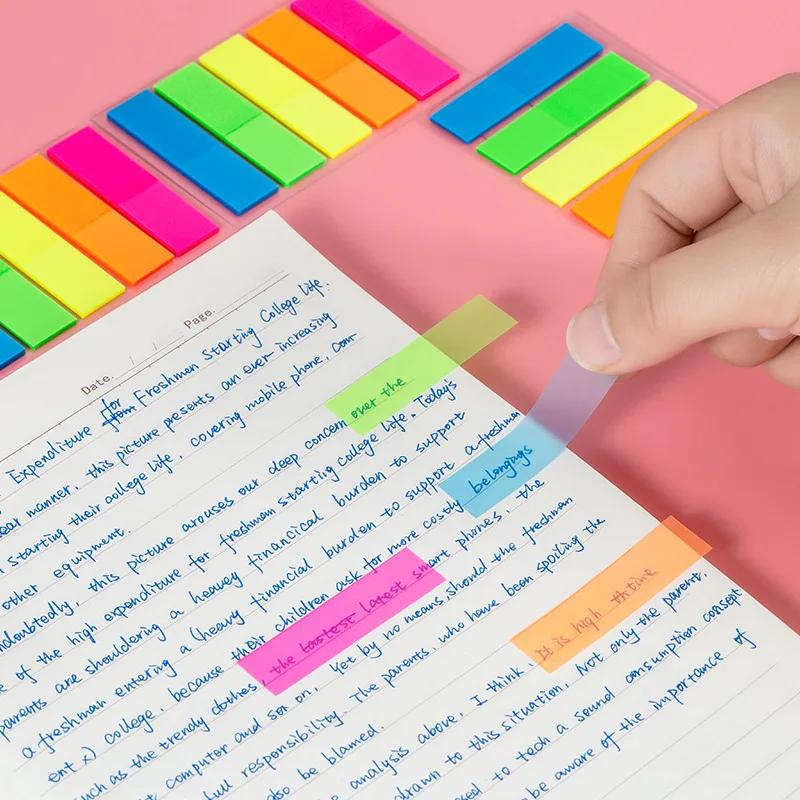 Date. / / Page.
Expenditure for from Freshmen Starting College life.
ear manner, this picture presents an ever increasing
starting their college life, covering mobile phone, com-
other equipment.
ndoubtedly, this picture arouses our deep concern over the
e of the high expenditure for freshmen starting college life. Today's
parents are shouldering a heavy financical burden to support
a freshman entering a (heavy financial burden to support a freshman
ent x) college, because their children ask for more costly belongings
such as the trendy clothes, the lastest latest smart phones, the
t computer and son on, Yet by no means should the freshman
full responsibility. The parents, who have been spoiling the
also be blamed.
analysis above, I think, It is high thtime
drawn to this situation. Not only the parent,
sed to tech a sound consumption consept
be aware of the importance of